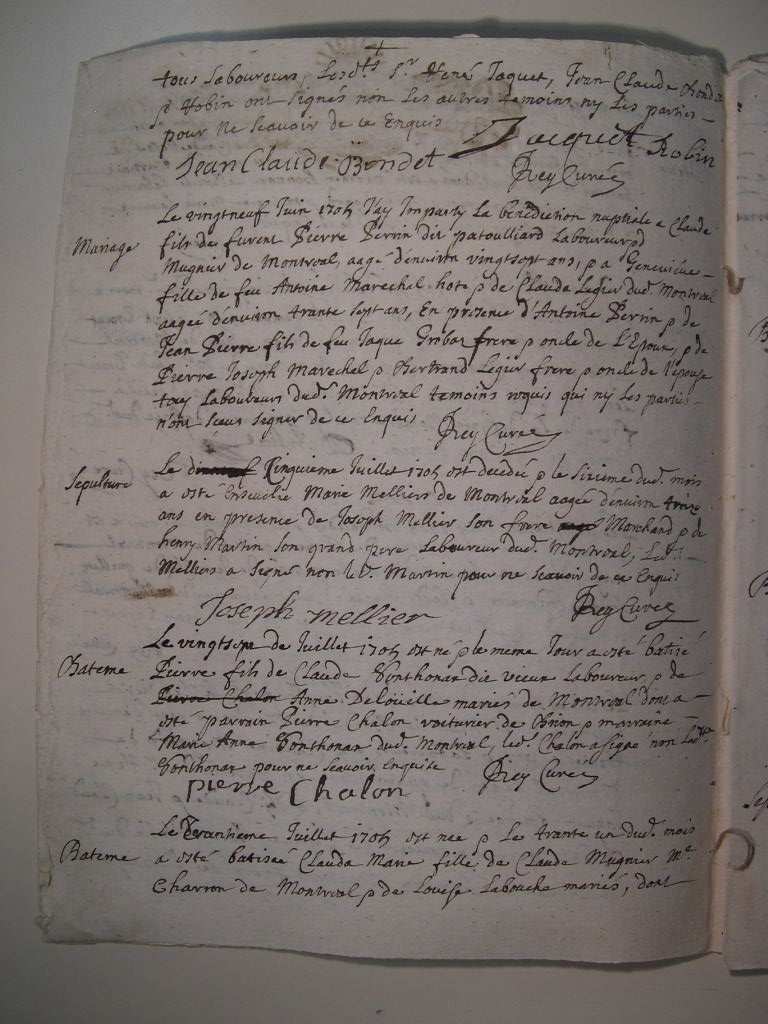 tous Laboureurs, Lesd.ts S.r René Jaquet, Jean Claude Bondet
& Robin ont signés non les autres temoins ny les parties
pour ne scavoir de ce Enquis
Jean Claude Bondet Jacquet Robin
Rey Curé
Le vingtneuf Juin 1705 J'ay Imparty La benediction nuptiale a Claude
Mariage
fils de furent Pierre Perrin dit patoulliard Laboureur &
Mugnier de Montroal, aagé d'environ vingtsept ans, & a Genevieve
fille de feu Antoine Marechel hote & de Claude Legier dud. Montroal
aagée d'environ trante sept ans, En presence d'Antoine Perrin & de
Jean Pierre fils de feu Jaque Grobas frere & oncle de L'Epoux, & de
Pierre Joseph Marechel & Bertrand Legier frere & oncle de l'epouse
tous Laboureurs dud. Montroal temoins requis qui ny les parties
n'ont sceus signer de ce Enquis
Rey Curé
Sepulture
Le Cinquieme Juillet 1705 est decedée & le sixieme dud. mois
a esté Ensevelie Marie Melliers de Montroal aagée d'environ treize
ans en presence de Joseph Mellier son frere Marchand & de
henry Martin son grand pere Laboureur dud. Montroal, Led.
Melliers a signé non led. Martin pour ne scavoir de ce Enquis
Joseph mellier Rey Curé
Le vingtsept de Juillet 1705 est né & le meme Jour a esté batisé
Bateme
Pierre fils de Claude Vonthonar dit vieux Laboureur, & de
Pierre Chalon Anne Delouille mariés de Montroal dont a
esté parrain Pierre Chalon voiturier de & marraine
Marie Anne Vonthonar dud. Montroal, led. Chalon a signé non Lad.
Vonthonar pour ne scavoir Enquise Rey Curé
pierre Chalon
Le trantieme Juillet 1705 est née & Le trante un dud. mois
Bateme
a esté batisée Clauda Marie fille de Claude Mugnier M.e
Charron de Montroal & de Louise Labouche mariés, dont